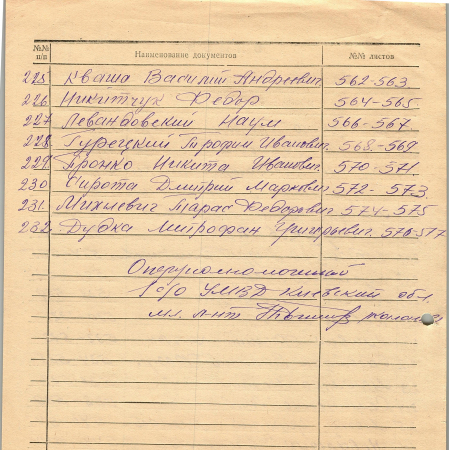 №№ п/п Наименование документов №№ листов
225 Кваша Василий Андреевич 562-563.
226 Никитчук Федор 564-565.
227 Левандовский Наум 566-567.
228 Гурецкий Трофим Иванович. 568-569
229 Пронко Никита Иванович. 570-571.
230 Сирота Дмитрий Маркович 572-573
231 Михневич Тарас Федорович 574-575
232 Дудка Митрофан Григорьевич. 576-577
Оперуполномоченный
УМВД Киевской обл.
мл. л-нт